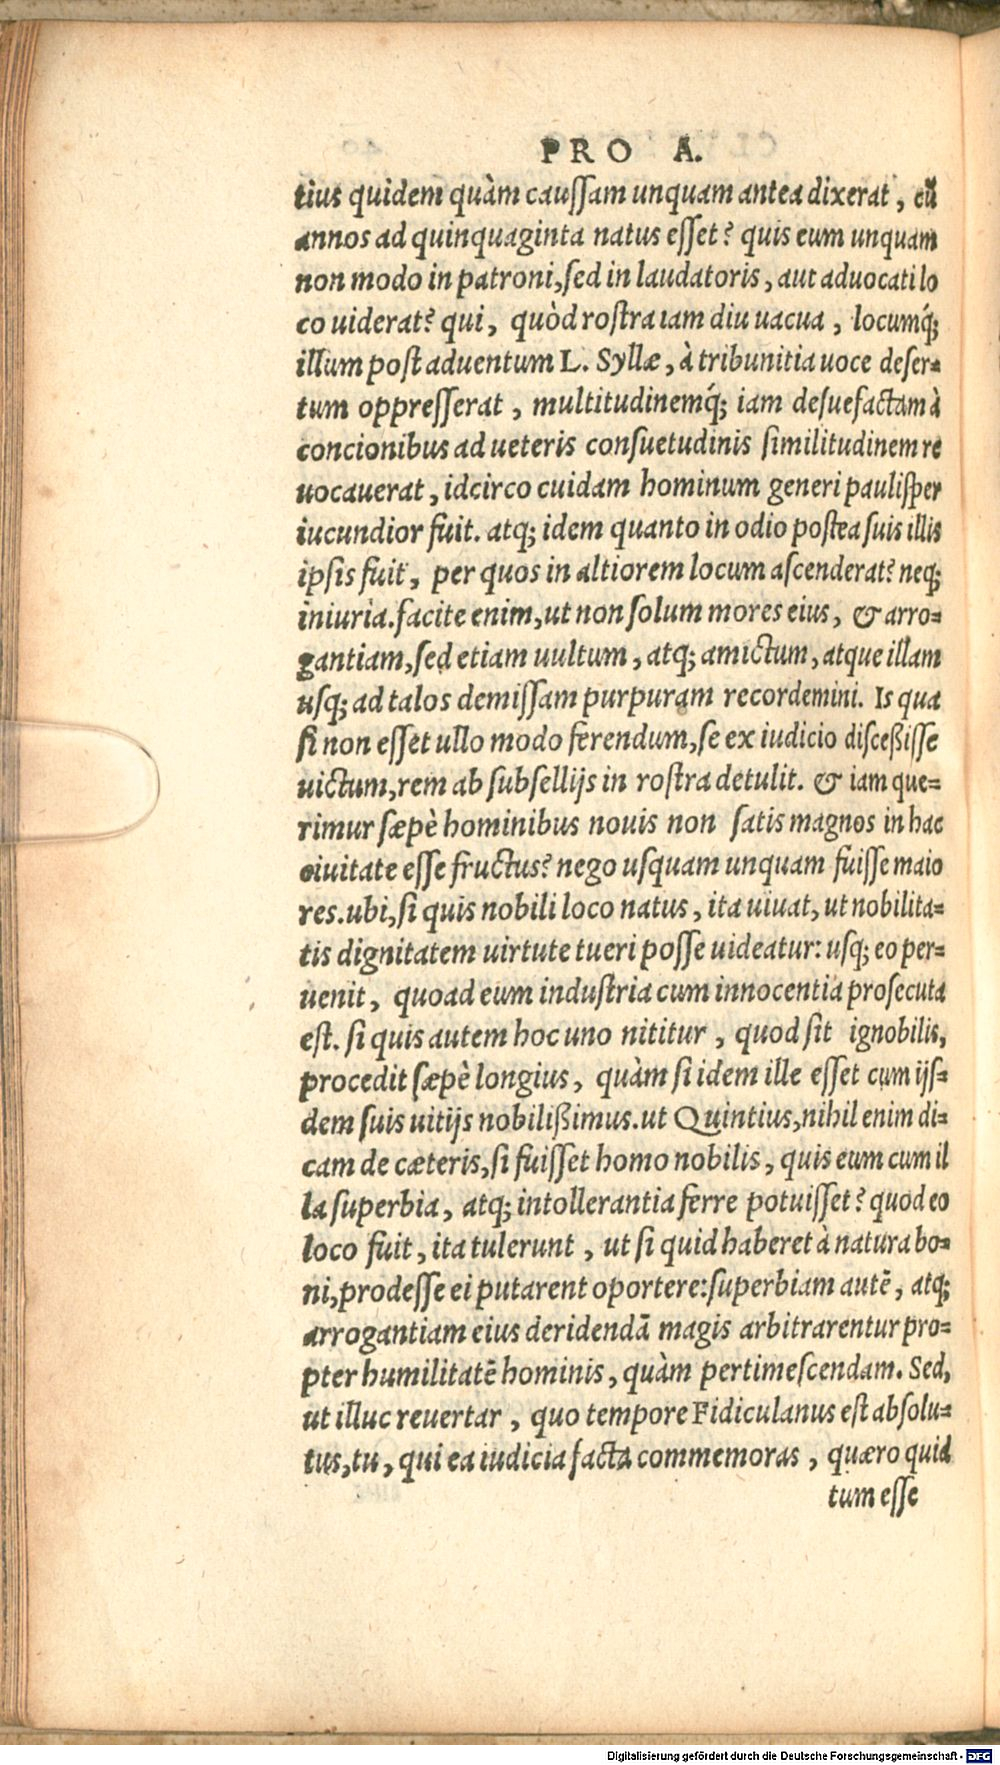 PRO A.
tius quidem quàm caussam unquam antea dixerat, cũ
annos ad quinquaginta natus esset? quis eum unquam
non modo in patroni, sed in laudatoris, aut aduocati lo
co uiderat? qui, quòd rostra iam diu uacua, locumq́;
illum post aduentum L. Syllæ, à tribunitia uoce deser-
tum oppresserat, multitudinemq́; iam desuefactam à
concionibus ad ueteris consuetudinis similitudinem re
uocauerat, idcirco cuidam hominum generi paulisper
iucundior fuit. atq; idem quanto in odio postea suis illis
ipsis fuit, per quos in altiorem locum ascenderat? neq;
iniuria. facite enim, ut non solum mores eius, & arro-
gantiam, sed etiam uultum, atq; amictum, atque illam
usq; ad talos demissam purpuram recordemini. Is qua
si non esset ullo modo ferendum, se ex iudicio disceßisse
uictum, rem ab subsellijs in rostra detulit. & iam que-
rimur sæpè hominibus nouis non satis magnos in hac
ciuitate esse fructus? nego usquam unquam fuisse maio
res. ubi, si quis nobili loco natus, ita uiuat, ut nobilita-
tis dignitatem uirtute tueri posse uideatur: usq; eo per-
uenit, quoad eum industria cum innocentia prosecuta
est. si quis autem hoc uno nititur, quod sit ignobilis,
procedit sæpè longius, quàm si idem ille esset cum ijs-
dem suis uitijs nobilißimus. ut Quintius, nihil enim di-
cam de cæteris, si fuisset homo nobilis, quis eum cum il
la superbia, atq; intollerantia ferre potuisset? quod eo
loco fuit, ita tulerunt, ut si quid haberet à natura bo-
ni, prodesse ei putarent oportere: superbiam autẽ, atq;
arrogantiam eius deridendã magis arbitrarentur pro-
pter humilitatẽ hominis, quàm pertimescendam. Sed,
ut illuc reuertar, quo tempore Fidiculanus est absolu-
tus, tu, qui ea iudicia facta commemoras, quæro quid
tum esse
Digitalisierung gefördert durch die Deutsche Forschungsgemeinschaft - DFG